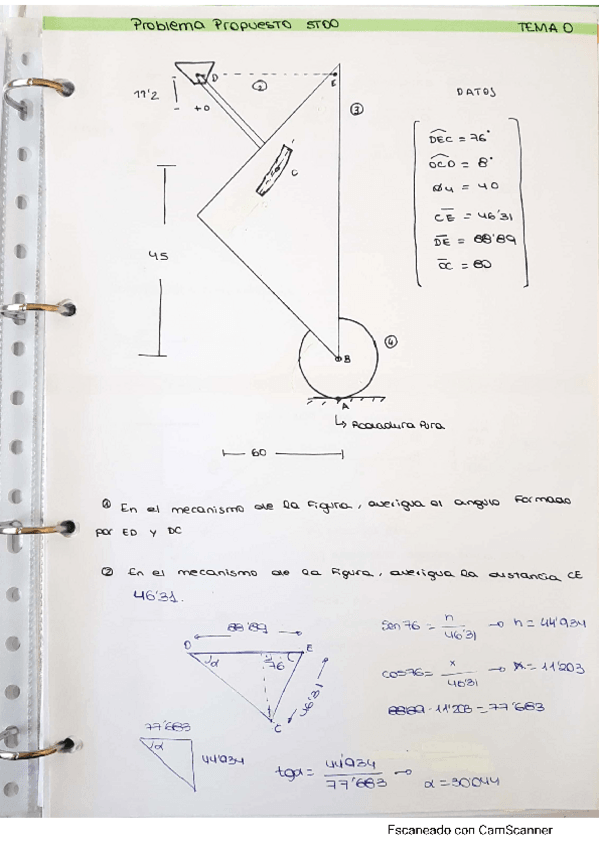 Problema Propuesto 5TOO
TEMA 0
D
E
②
11'2
+O
③
DATOS
DEC = 76°
OCD = 8°
ø4 = 40
CE = 46'31
DE = 88'89
OC = 80
C
45
④
B
A
↳ Rodadura Pura
60
① En el mecanismo de la Figura, averigua el angulo Formado
por ED y DC
② En el mecanismo de la Figura, averigua la distancia CE
46'31.
88'89
D
E
α
76
46'31
C
Sen 76 = h / 46'31 → h = 44'934
cos 76 = x / 46'31 → x = 11'203
88'89 - 11'203 = 77'683
77'683
α
44'934
tgα = 44'934 / 77'683 → α = 30'044
Escaneado con CamScanner